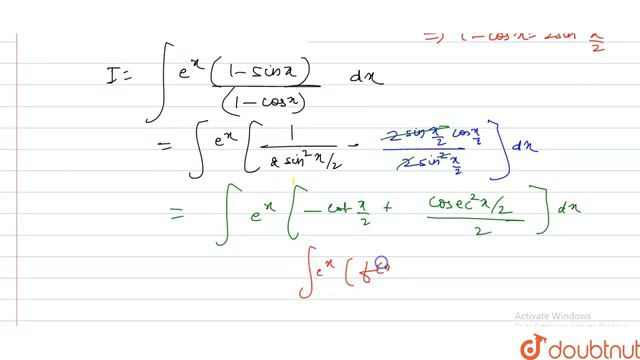 ⇒ 1 - cosx = 2sin² x/2
I = ∫ e^x (1 - sinx)/(1 - cosx) dx
= ∫ e^x [ 1/(2 sin² x/2) - (2 sin x/2 cos x/2)/(2 sin² x/2) ] dx
= ∫ e^x [ - cot x/2 + (cosec² x/2)/2 ] dx
∫ e^x ( f(
Activate Windows
doubtnut